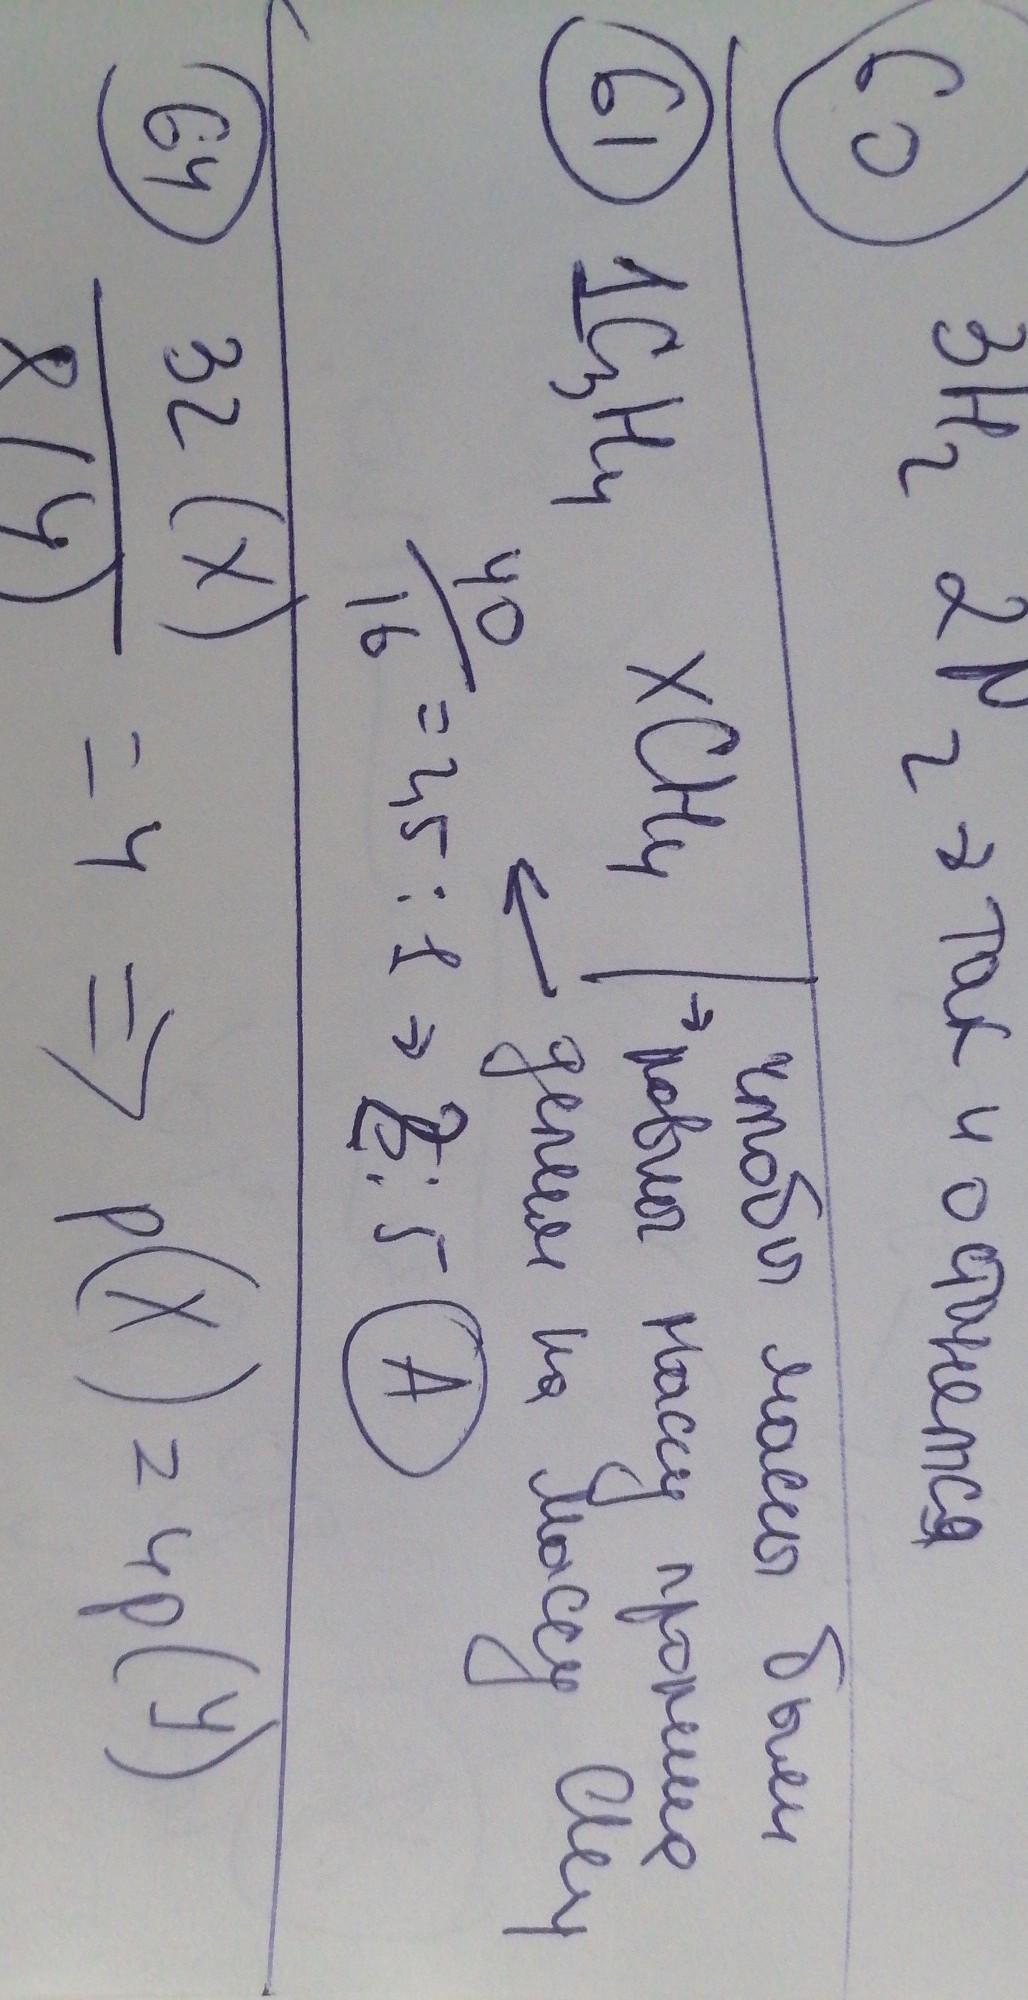 60 3H2 2N2 → так и останется
61 1C3H4 xCH4 → чтобы массы были
равны массу пропина
делим на массу CH4
40/16 = 2,5 : 1 → 2 : 5 A
64 32 (X) / 8 (Y) = 4 ⇒ p(X) = 4p(Y)